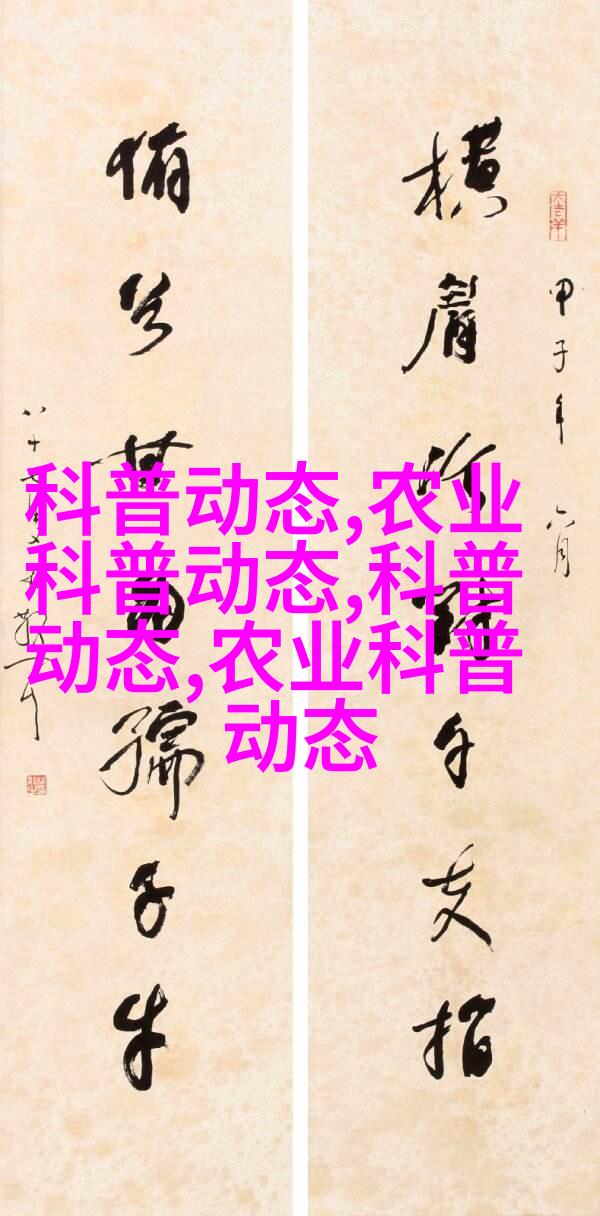 横眉冷對千夫指
甲子年六月
俯首甘為孺子牛
科普动态,农业
科普动态,科普
动态,农业科普
动态